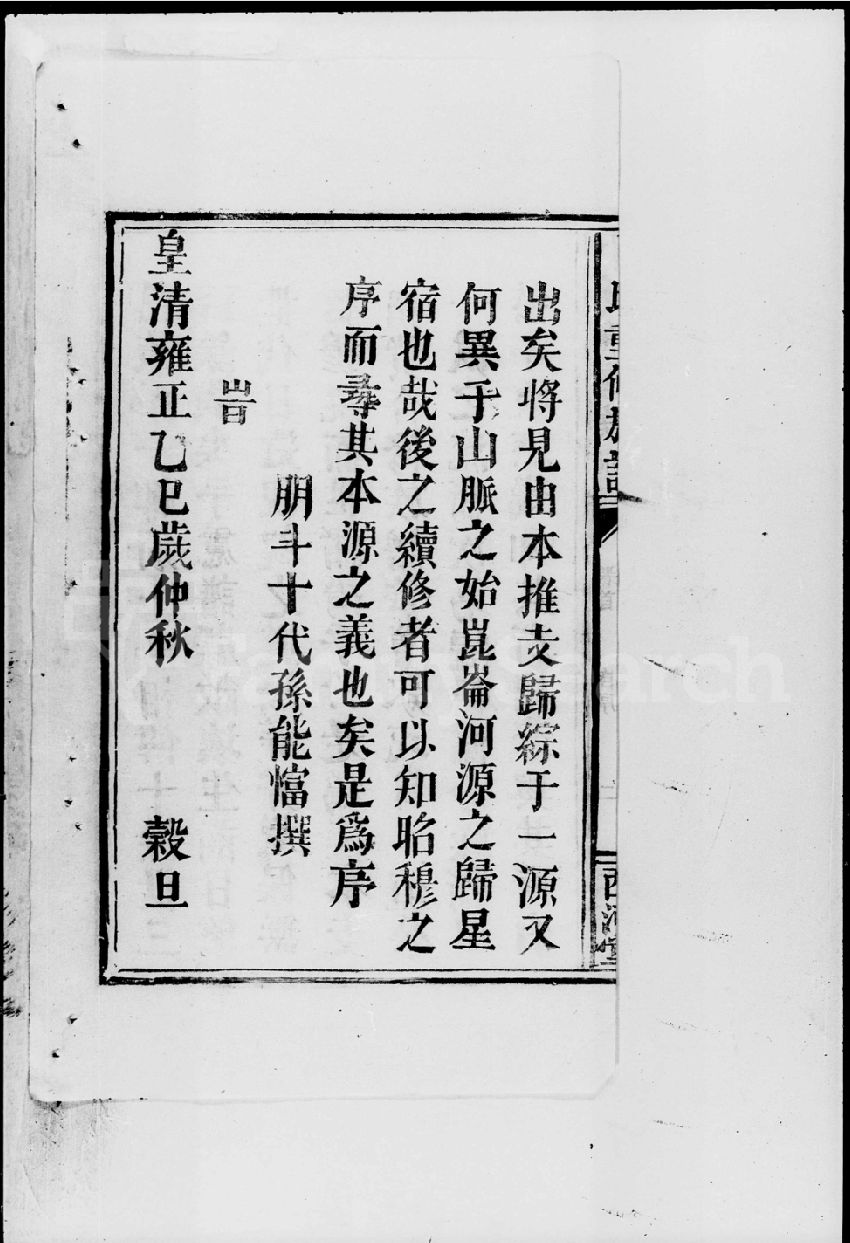 氏重修族譜
西河堂
出矣將見由本推支歸綜于一源又
何異于山脈之始崑崙河源之歸星
宿也哉後之續修者可以知昭穆之
序而尋其本源之義也矣是爲序
朋斗十代孫能㦂撰
旹
皇清雍正乙巳歲仲秋 穀旦